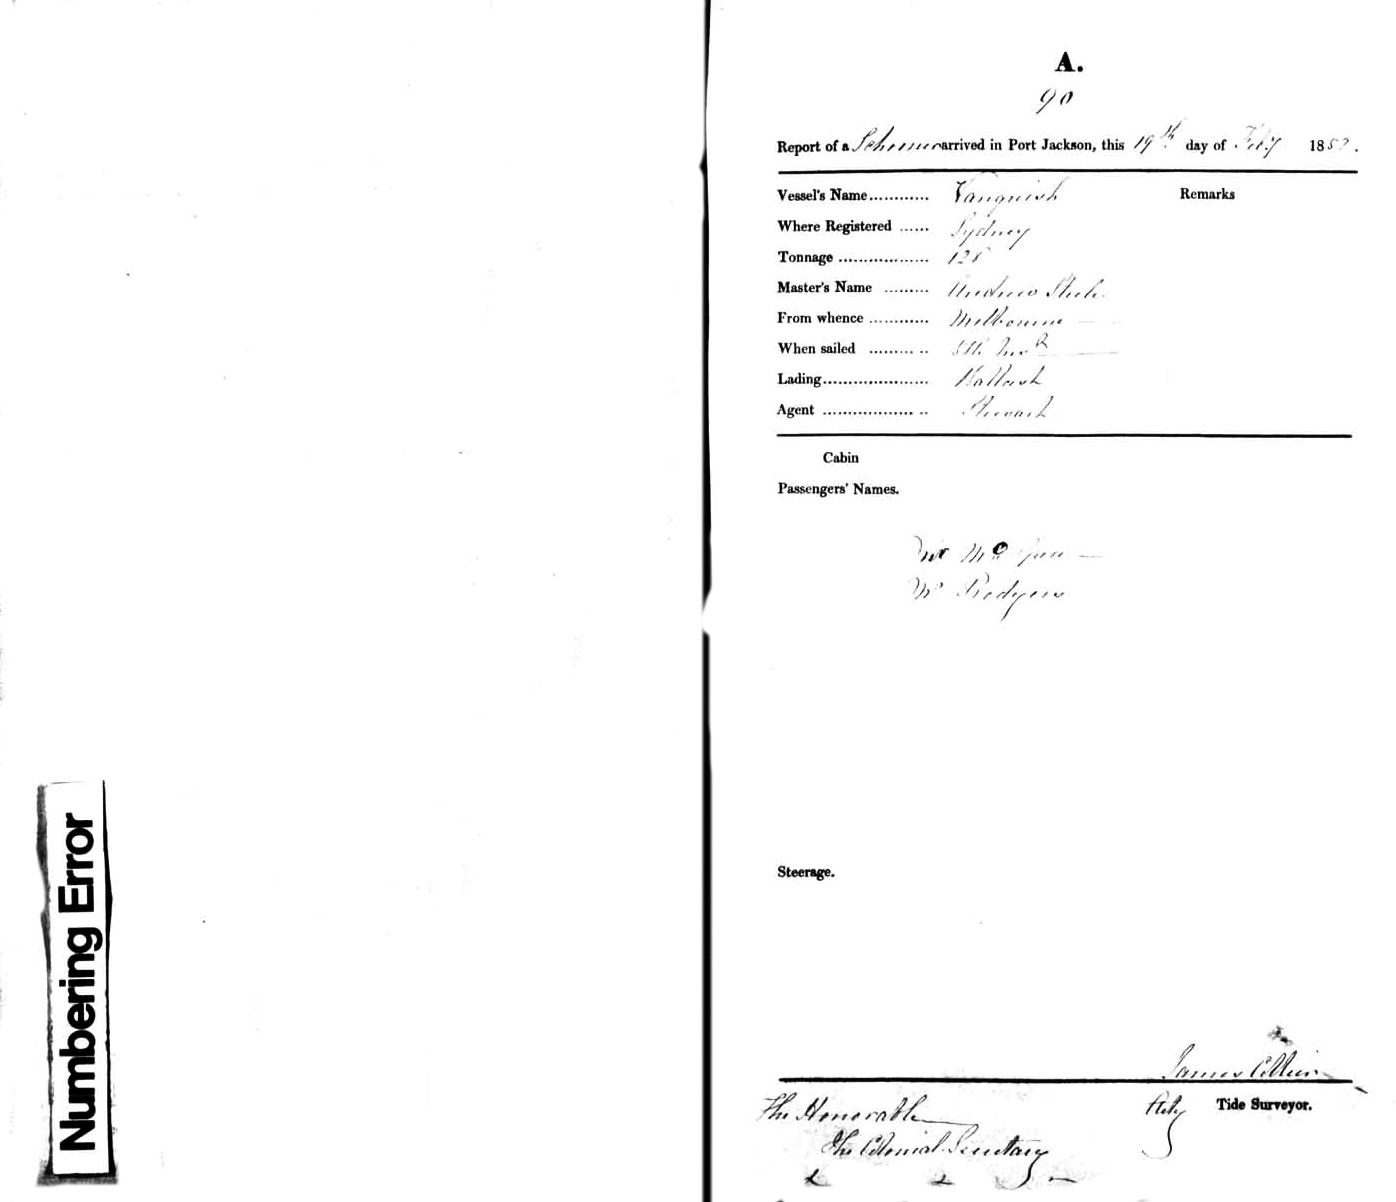 Numbering Error
A.
90
Report of a Schooner arrived in Port Jackson, this 19th day of Feby 185
Vessel's Name............ Vanquish Remarks
Where Registered ...... Sydney
Tonnage .................. 128
Master's Name ......... Andrew
From whence ............ Melbourne
When sailed ......... .. 5th
Lading..................... Ballast
Agent .................. .. Stewart
Cabin
Passengers' Names.
Mr Mc
Mr Rodgers
Steerage.
James
The Honorable Actg Tide Surveyor.
The Colonial Secretary